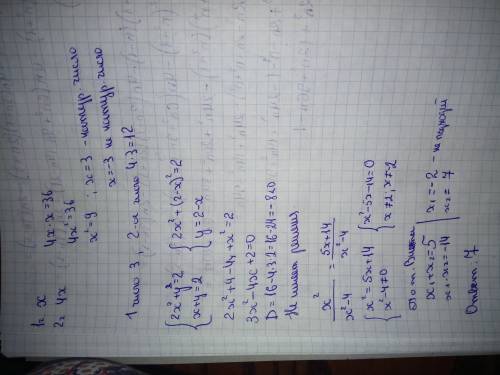 1: x
2: 4x
4x·x=36
4x²=36
x²=9 ; x=3 - натур. число
x=-3 не натур. число
1 число 3, 2-е число 4·3=12
{2x²+y²=2 {2x²+(2-x)²=2
{x+y=2 {y=2-x
2x²+4-4x+x²=2
3x²-4x+2=0
D=16-4·3·2=16-24=-8<0
Не имеет решения
x²/(x²-4) = (5x+14)/(x²-4)
{x²=5x+14 {x²-5x-14=0
{x²-4≠0 {x≠2; x≠-2
по т. Виета
x₁+x₂=5 | x₁=-2 - не подходит
x₁·x₂=-14 | x₂=7
Ответ: 7